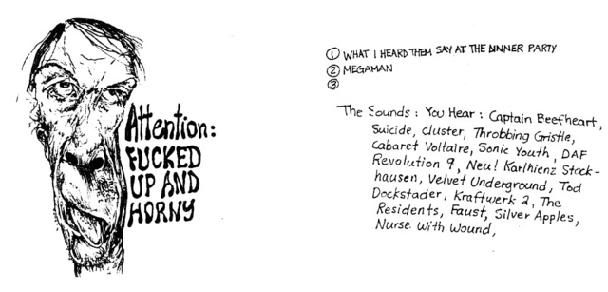 Attention:
FUCKED
UP AND
HORNY
① WHAT I HEARD THEM SAY AT THE DINNER PARTY
② MEGAMAN
③
The Sounds: You Hear: Captain Beefheart,
Suicide, cluster, Throbbing Gristle,
Cabaret Voltaire, Sonic Youth, DAF
Revolution 9, Neu! Karlhienz Stock-
hausen, Velvet Underground, Tod
Dockstader, Kraftwerk 2, The
Residents, Faust, Silver Apples,
Nurse with Wound,